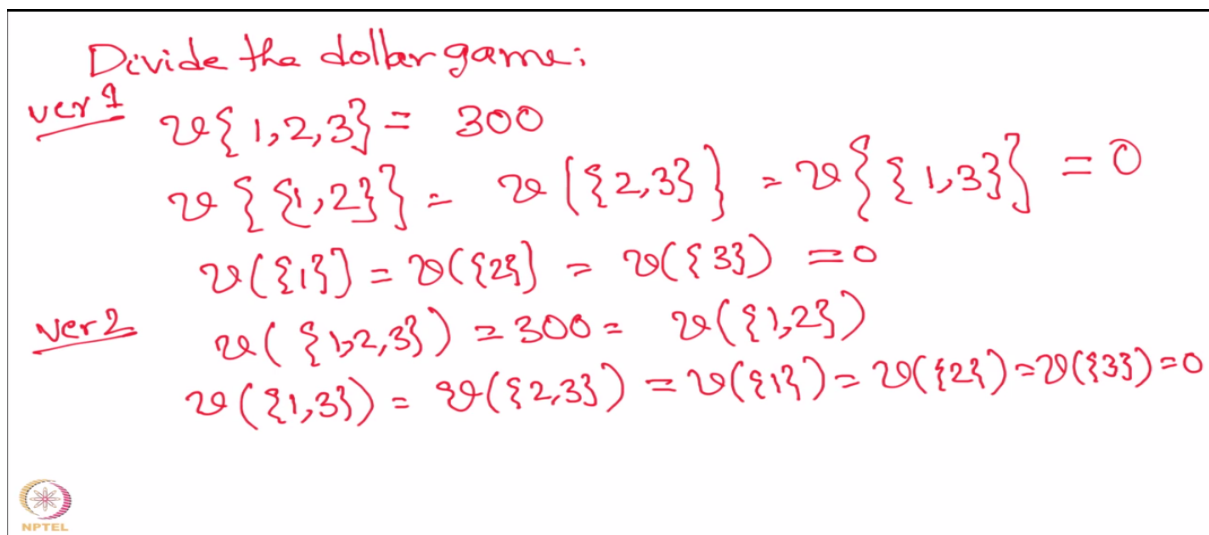 Divide the dollar game:
ver 1
v{1,2,3} = 300
v{{1,2}} = v({2,3}} = v{{1,3}} = 0
v({1}) = v({2}) = v({3}) = 0
ver 2
v({1,2,3}) = 300 = v({1,2})
v({1,3}) = v({2,3}) = v({1}) = v({2}) = v({3}) = 0
NPTEL